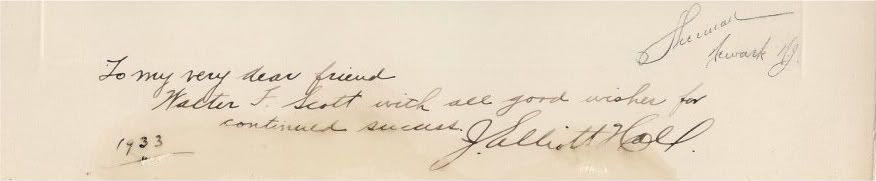 Sherman
Newark N.J.
To my very dear friend
Walter F. Scott with all good wishes for
continued success.
J. Elliott Hall.
1933